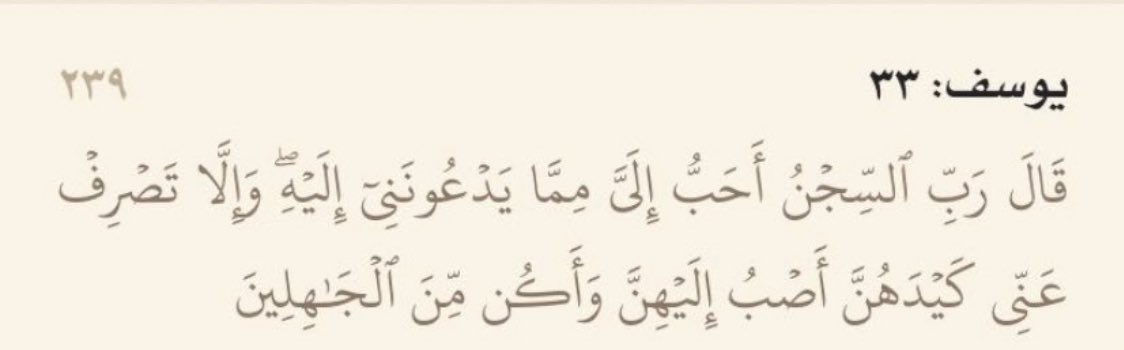 يوسف: ٣٣ ٢٣٩
قَالَ رَبِّ ٱلسِّجۡنُ أَحَبُّ إِلَيَّ مِمَّا يَدۡعُونَنِيٓ إِلَيۡهِۖ وَإِلَّا تَصۡرِفۡ
عَنِّي كَيۡدَهُنَّ أَصۡبُ إِلَيۡهِنَّ وَأَكُن مِّنَ ٱلۡجَٰهِلِينَ